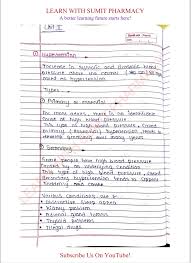 LEARN WITH SUMIT PHARMACY
A better learning future starts here!
UNIT II
Hypertension
Increase in systolic and diastolic blood
pressure above the normal
Types
① Primary or essential
For most adults, there is no identifiable
cause of high blood pressure
This type of high blood pressure, called
primary (essential) hypertension, tends to
develop gradually over many years
② Secondary
Some people have high blood pressure
caused by an underlying condition
This type of high blood pressure, called
Secondary hypertension tends to appear
Suddenly and cause
Various Conditions
Obstructive sleep apnea
Kidney problem
Adrenal gland tumors
Thyroid problems
Illegal drugs
Subscribe Us On YouTube!